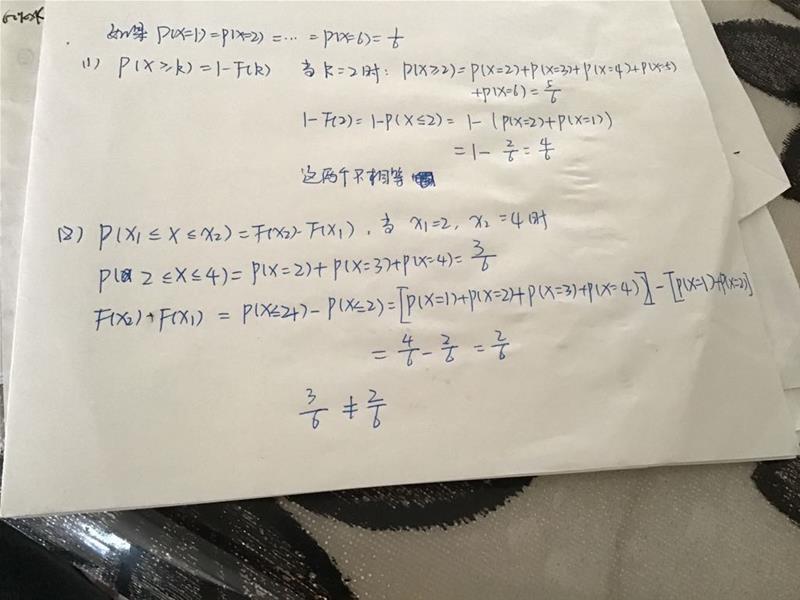 如果 P(X=1)=P(X=2)=⋯=P(X=6)=1/6
(1) P(X≥k)=1-F(k) 当k=2时: P(X≥2)=P(X=2)+P(X=3)+P(X=4)+P(X=5)
+P(X=6)=5/6
1-F(2)=1-P(X≤2)=1-(P(X=2)+P(X=1))
=1-2/6=4/6
这两个不相等
(2) P(X₁≤X≤X₂)=F(X₂)-F(X₁), 当 X₁=2, X₂=4时
P(2≤X≤4)=P(X=2)+P(X=3)+P(X=4)=3/6
F(X₂)-F(X₁)=P(X≤4)-P(X≤2)=[P(X=1)+P(X=2)+P(X=3)+P(X=4)]-[P(X=1)+P(X=2)]
=4/6-2/6=2/6
3/6≠2/6